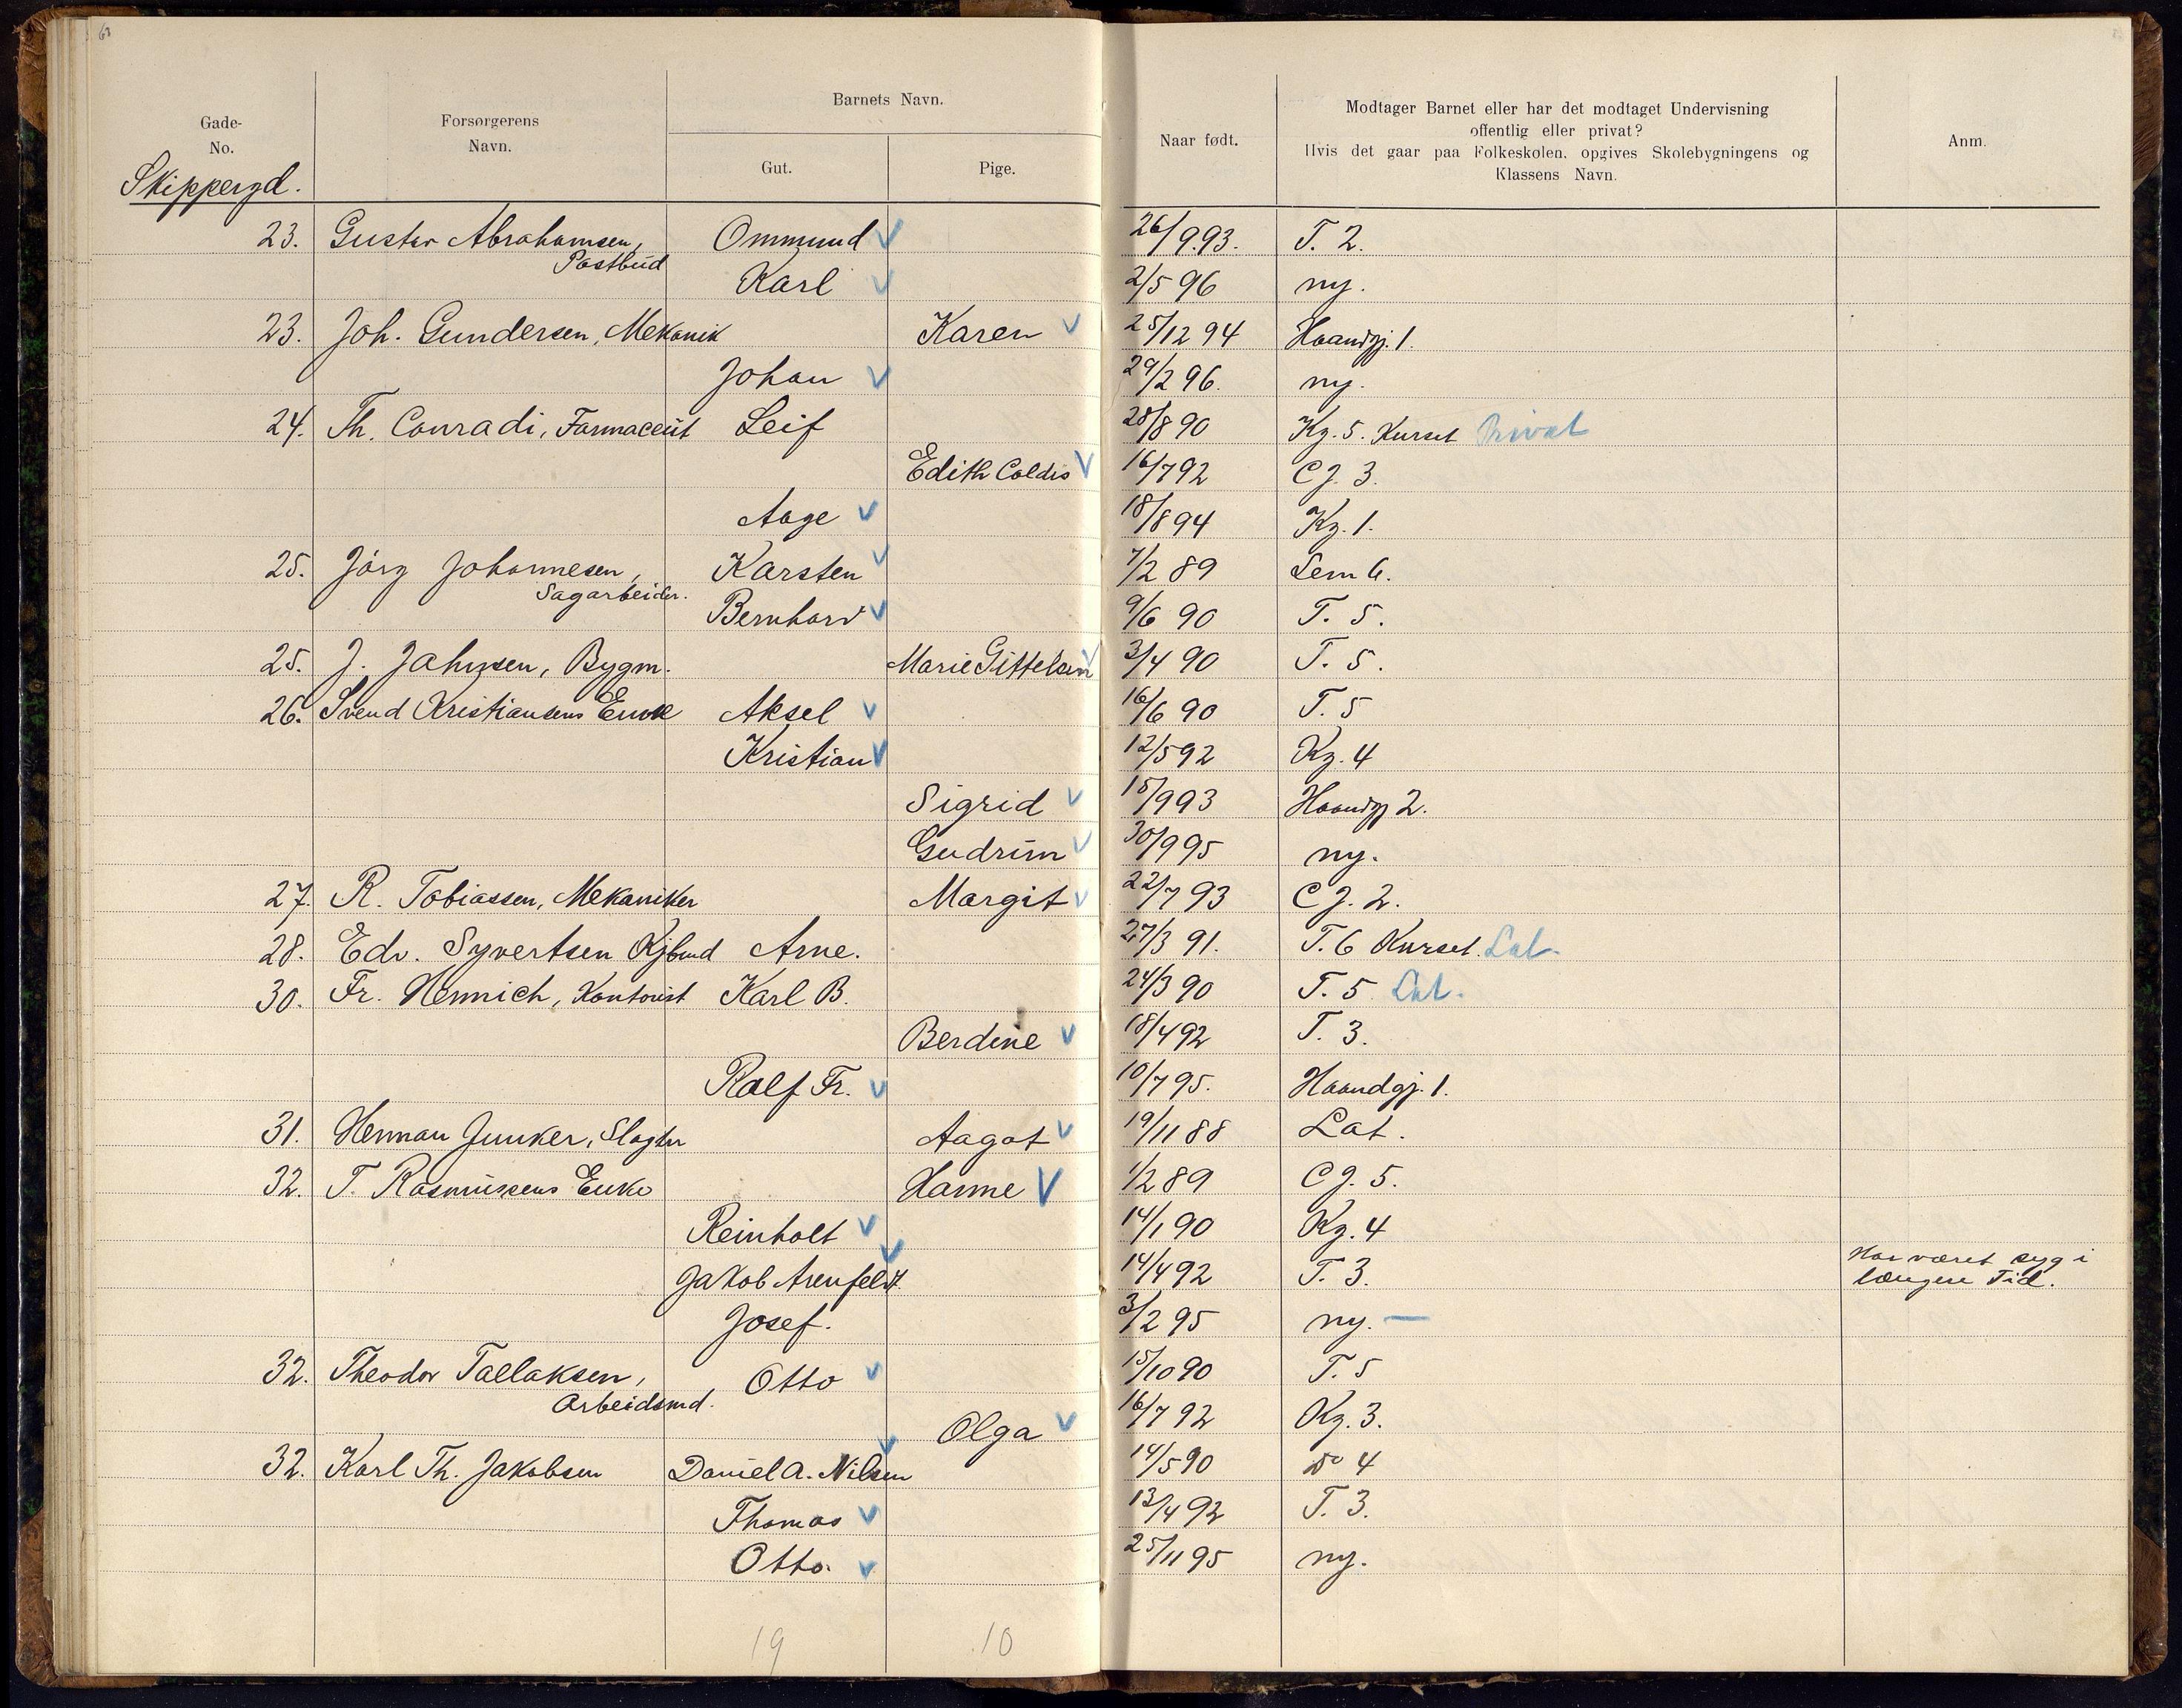 63
Gade-
No.
Forsørgerens
Navn.
Barnets Navn.
Gut.
Pige.
Naar født.
Modtager Barnet eller har det modtaget Undervisning
offentlig eller privat?
Hvis det gaar paa Folkeskolen, opgives Skolebygningens og
Klassens Navn.
Anm.
Skippergd.
23. Gustav Abrahamsen, Ommund 26/9 93. T. 2.
Postbud
Karl 2/5 96 ny.
23. Joh. Gundersen, Mekanik Karen 25/12 94 Haandgj. 1.
Johan 29/2 96. ny.
24. Th. Conradi, Farmaceut Leif 28/8 90 Kg. 5. Kurset Privat
Edith Coldis 16/7 92 C J. 3.
Aage 18/8 94 Kg. 1.
25. Jörg Johannesen, Karsten 7/2 89 Sem 6.
Sagarbeider.
Bernhard 9/6 90 T. 5.
25. J. Jahnsen, Bygm. Marie Gittelsen 3/4 90 T. 5.
26. Svend Kristiansens Enke Aksel 16/6 90 T. 5
Kristian 12/5 92 Kg. 4
Sigrid 15/9 93 Haandgj 2.
Gudrun 30/9 95 ny.
27. R. Tobiassen, Mekaniker Margit 22/7 93 C J. 2.
28. Edv. Syvertsen Kjbmd Arne. 27/3 91. T. 6 Kurset. Lat.
30. Fr. Hennich, Kontorist Karl B. 24/3 90 T. 5 Lat.
Berdine 18/4 92 T. 3.
Ralf Fr. 10/7 95. Haandgj. 1.
31. Herman Junker, Slagter Aagot 19/11 88 Lat.
32. T. Rasmussens Enke Hanne 1/2 89 C J. 5.
Reinholt 14/1 90 Kg. 4
Jakob Arenfeldt. 14/4 92 T. 3. Har været syg i
længere Tid.
Josef. 3/2 95 ny. —
32. Theodor Tallaksen, Otto 15/10 90 T. 5
Arbeidsmd.
Olga 16/7 92 Kg. 3.
32. Karl Th. Jakobsen Daniel A. Nilsen 14/5 90 do 4
Thomas 13/4 92 T. 3.
Otto. 25/11 95 ny.
19 10